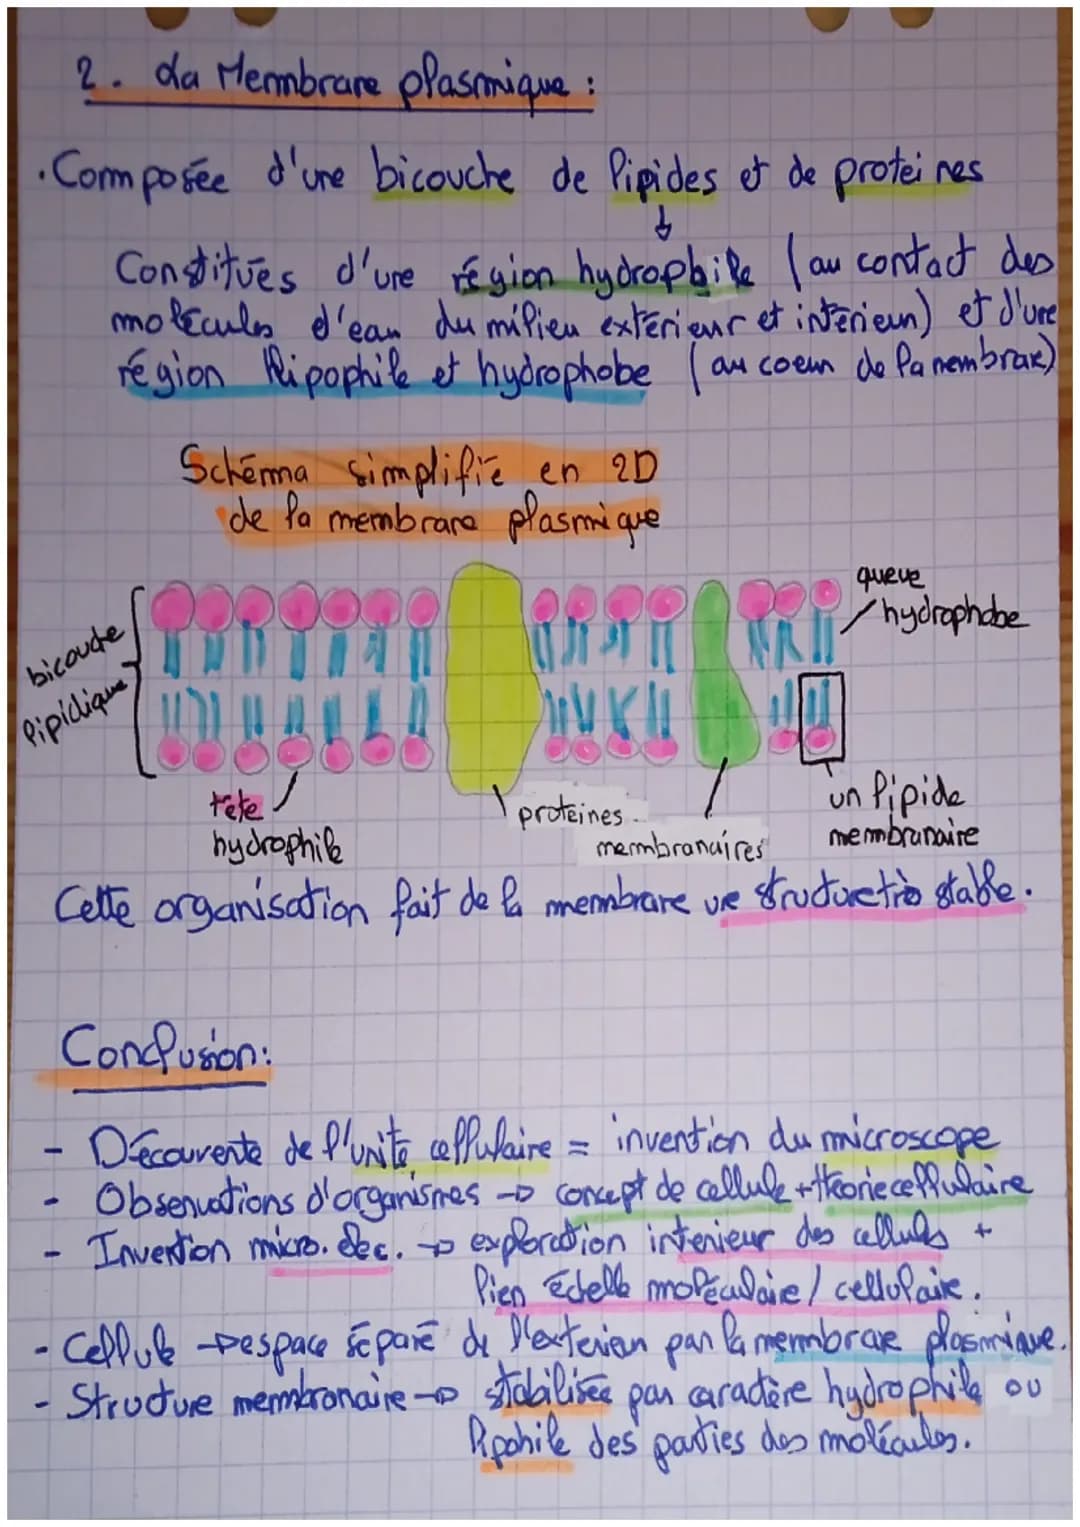 2. La Membrane plasmique :
. Composée d'une bicouche de lipides et de proteines
↓
Constitués d'une région hydrophile (au contact des
molécules d'eau du milieu extérieur et intérieur) et d'une
région lipophile et hydrophobe (au coeur de la membrane)
Schéma simplifié en 2D
de la membrane plasmique
queue
hydrophobe
bicouche
lipidique
tête
hydrophile
proteines
membranaires
un lipide
membranaire
Cette organisation fait de la membrane une structure très stable.
Conclusion:
- Découverte de l'unité cellulaire = invention du microscope
- Observations d'organismes → concept de cellule + théorie cellulaire
- Invention micro. élec. → exploration intérieur des cellules +
lien échelle moléculaire / cellulaire.
- Cellule → espace séparé de l'extérieur par la membrane plasmique.
- Structure membranaire → stabilisée par caractère hydrophile ou
lipohile des parties des molécules.